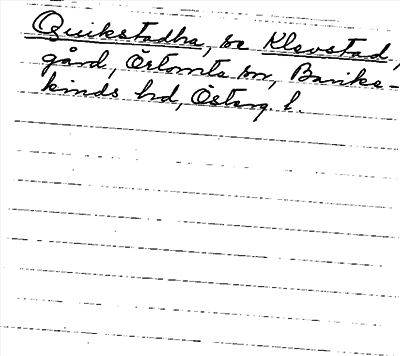 Quikstadha, se Klevstad,
gård, Örtomta sn, Banke-
kinds hd, Österg. l.